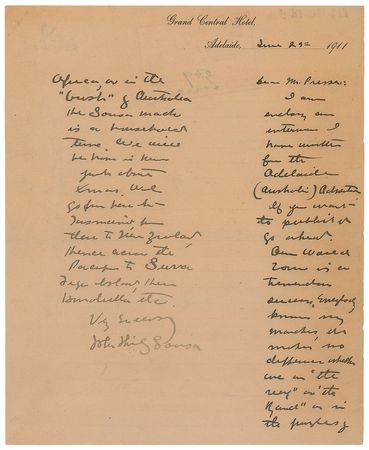 Grand Central Hotel,
Adelaide, June 29 1911
Dear Mr. Presser:
I am
enclosing an
interview I
have written
for the
Adelaide
(Australia) Advertiser
If you want
to publish it
go ahead.
Our World
Tour is a
tremendous
success. Everybody
knows my
marches it
makes no
difference whether
we are on "the
" or "the
Rand" or in
the jungles of
Africa, or in the
"bush" of Australia
the Sousa march
is a household
term. We will
be home in New
York about
Xmas. We
go from here to
Tasmania from
there to New Zealand
thence across the
Pacific to Suva
Fiji Islands then
Honolulu etc.
Very Sincerely
John Philip Sousa